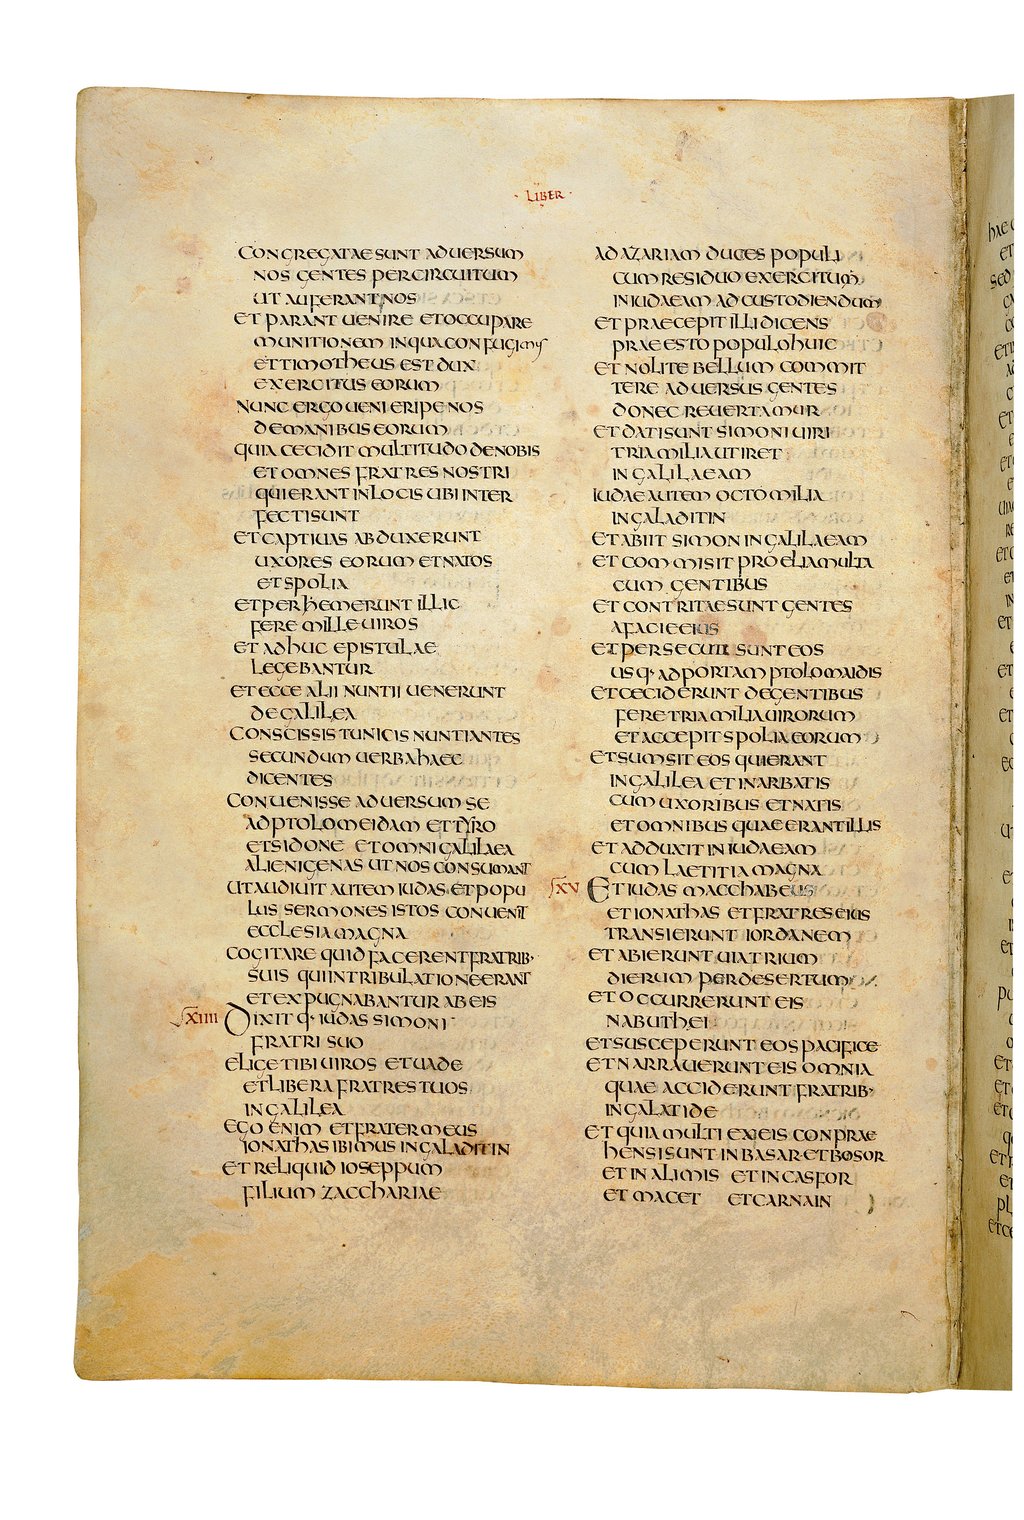 LIBER
CONGREGATAE SUNT ADUERSUM
NOS GENTES PERCIRCUITUM
UT AUFERANT NOS
ET PARANT UENIRE ET OCCUPARE
MUNITIONEM IN QUA CONFUGIMUS
ET TIMOTHEUS EST DUX
EXERCITUS EORUM
NUNC ERGO UENI ERIPE NOS
DE MANIBUS EORUM
QUIA CECIDIT MULTITUDO DE NOBIS
ET OMNES FRATRES NOSTRI
QUI ERANT IN LOCIS UBI INTER
FECTI SUNT
ET CAPTIUAS ABDUXERUNT
UXORES EORUM ET NATOS
ET SPOLIA
ET PERHEMERUNT ILLIC
FERE MILLE UIROS
ET ADHUC EPISTULAE
LEGEBANTUR
ET ECCE ALII NUNTII UENERUNT
DE GALILEA
CONSCISSIS TUNICIS NUNTIANTES
SECUNDUM UERBA HAEC
DICENTES
CONUENISSE ADUERSUM SE
AD PTOLOMEIDAM ET TYRO
ET SIDONE ET OMNI GALILAEA
ALIENIGENAS UT NOS CONSUMANT
UT AUDIUIT AUTEM IUDAS ET POPU
LUS SERMONES ISTOS CONUENIT
ECCLESIA MAGNA
COGITARE QUID FACERENT FRATRIB·
SUIS QUI IN TRIBULATIONE ERANT
ET EXPUGNABANTUR AB EIS
XIIII DIXIT Q· IUDAS SIMONI
FRATRI SUO
ELIGE TIBI UIROS ET UADE
ET LIBERA FRATRES TUOS
IN GALILEA
EGO ENIM ET FRATER MEUS
IONATHAS IBIMUS IN GALADITIN
ET RELIQUID IOSEPPUM
FILIUM ZACCHARIAE
AD AZARIAM DUCES POPULI
CUM RESIDUO EXERCITUM
IN IUDAEAM AD CUSTODIENDUM
ET PRAECEPIT ILLI DICENS
PRAEESTO POPULO HUIC
ET NOLITE BELLUM COMMIT
TERE ADUERSUS GENTES
DONEC REUERTAMUR
ET DATI SUNT SIMONI UIRI
TRIA MILIA UT IRET
IN GALILAEAM
IUDAE AUTEM OCTO MILIA
IN GALADITIN
ET ABIIT SIMON IN GALILAEAM
ET COMMISIT PROELIA MULTA
CUM GENTIBUS
ET CONTRITAE SUNT GENTES
A FACIE EIUS
ET PERSECUTI SUNT EOS
USQ· AD PORTAM PTOLOMAIDIS
ET CECIDERUNT DE GENTIBUS
FERE TRIA MILIA UIRORUM
ET ACCEPIT SPOLIA EORUM
ET SUMSIT EOS QUI ERANT
IN GALILEA ET IN ARBATIS
CUM UXORIBUS ET NATIS
ET OMNIBUS QUAE ERANT ILLIS
ET ADDUXIT IN IUDAEAM
CUM LAETITIA MAGNA
XV ET IUDAS MACCHABEUS
ET IONATHAS ET FRATRES EIUS
TRANSIERUNT IORDANEM
ET ABIERUNT UIA TRIUM
DIERUM PER DESERTUM
ET OCCURRERUNT EIS
NABUTHEI
ET SUSCEPERUNT EOS PACIFICE
ET NARRAUERUNT EIS OMNIA
QUAE ACCIDERUNT FRATRIB·
IN GALATIDE
ET QUIA MULTI EX EIS CONPRAE
HENSI SUNT IN BASAR ET BOSOR
ET IN ALIMIS ET IN CASFOR
ET MACET ET CARNAIN